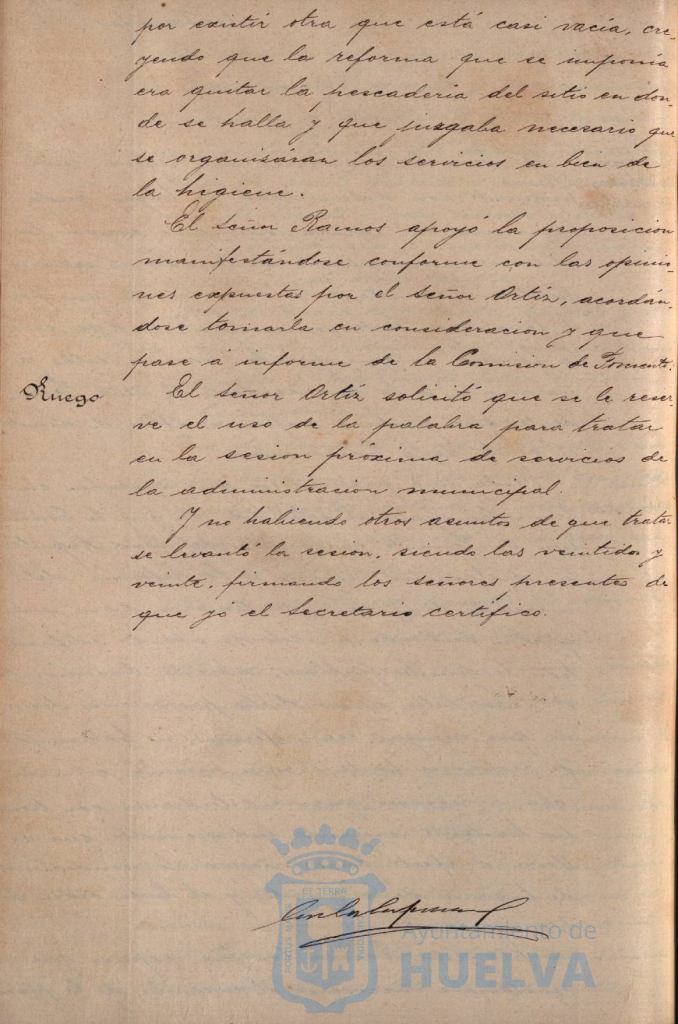 por existir otra que está casi vacía, cre-
yendo que la reforma que se imponía
era quitar la pescaderia del sitio en don-
de se halla y que juzgaba necesario que
se organisáran los servicios en bien de
la higiene.
El señor Ramos apoyó la proposicion
manifestándose conforme con las opinio-
nes expuestas por el señor Ortiz, acordán-
dose tomarla en consideracion y que
pase á informe de la Comision de Fomento.
Ruego
El señor Ortiz solicitó que se le reser-
ve el uso de la palabra para tratar
en la sesion próxima de servicios de
la administracion municipal.
Y no habiendo otros asuntos de que tratar
se levantó la sesion, siendo las veintidos y
veinte, firmando los señores presentes de
que yó el Secretario certifico.
ET TERRA
PORTUS MARIS
CUSTODIA
Ayuntamiento de
HUELVA